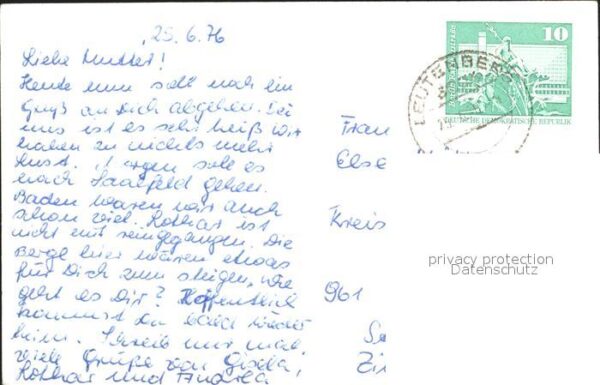 25.6.76
Liebe Mutter!
Heute nun soll noch ein
Gruß an Dich abgehen. Bei
uns ist es sehr heiß wir
haben zu nichts mehr
Lust. Morgen soll es
nach Saalfeld gehen.
Baden waren wir auch
schon viel. Lothar ist
nicht mit reingegangen. Die
Berge hier wären etwas
für Dich zum steigen, wie
geht es Dir? Hoffentlich
kommst du bald wieder
heim. Schreib mir mal,
viele Grüße von Gisela,
Lothar und
10
DEUTSCHE DEMOKRATISCHE REPUBLIK
LEUTENBERG
Frau
Else
Kreis
961
privacy protection
Datenschutz